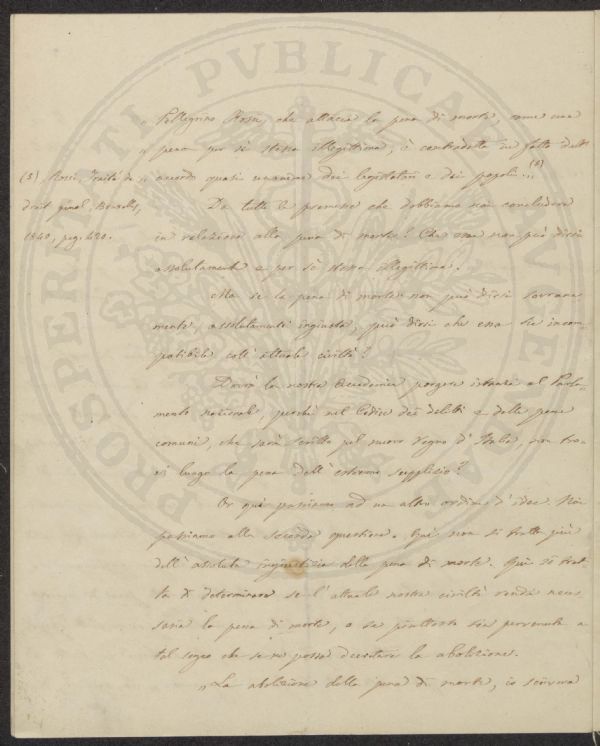 „ Pellegrino Rossi, che attacca la pena di morte, come una
„ pena per sè stessa illegittima, è contradetta in fatto dall'
(5) Rossi, Traité de „ accordo quasi unanime dei legislatori e dei popoli „ (5)
droit pénal, Bruxelles,
Da tutte le premesse che dobbiamo noi concludere
1840, pag. 420.
in relazione alla pena di morte? Che essa non può dirsi
assolutamente e per sè stessa illegittima.
Ma se la pena di morte non può dirsi sovrana
mente, assolutamente ingiusta, può dirsi che essa sia incom
patibile coll'attuale civiltà?
Dovrà la nostra Accademia porgere istanza al Parla-
mento nazionale, perchè nel Codice dei delitti e delle pene
comuni, che sarà scritto pel nuovo regno d'Italia, non tro-
vi luogo la pena dell'estremo supplicio?
Or qui passiamo ad un altro ordine d'idee. Noi
passiamo alla seconda questione. Qui non si tratta più
dell'assoluta ingiustizia della pena di morte. Qui si trat-
ta di determinare se l'attuale nostra civiltà renda neces
saria la pena di morte, o se piuttosto sia pervenuta a
tal segno che se ne possa decretare la abolizione.
„ La abolizione della pena di morte, io scriveva
PROSPERITATI PVBLICAE AVGENDAE